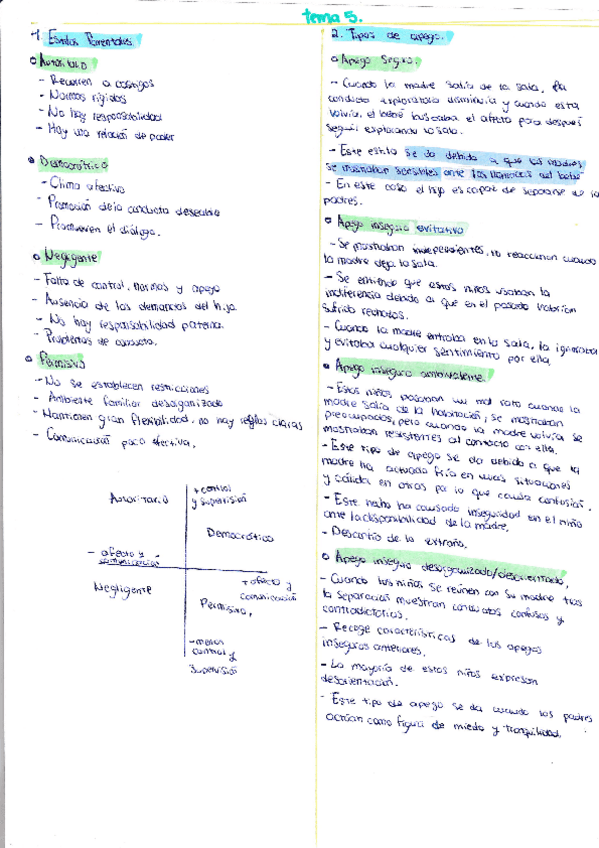 tema 5.
1. Estilos Parentales.
Autoritario
- Recurren a castigos
- Normas rígidas
- No hay responsabilidad
- Hay una relación de poder
Democrático
- Clima afectivo
- Promoción de la conducta deseable
- Promueven el diálogo.
Negligente
- Falta de control, normas y apego
- Ausencia de las demandas del hijo.
- No hay responsabilidad paterna.
- Problemas de conducta.
Permisivo
- No se establecen restricciones
- Ambiente familiar desorganizado
- Mantienen gran flexibilidad, no hay reglas claras
- Comunicación poco efectiva.
Autoritario
+ control
y supervisión
Democrático
- afecto y
comunicación
Negligente
+ afecto y
comunicación
Permisivo.
- menos
control
y
supervisión
2. Tipos de apego.
Apego Seguro.
- Cuando la madre salía de la sala, la
conducta exploratoria disminuía y cuando esta
volvía, el bebé buscaba el afecto para después
seguir explorando la sala.
- Este estilo se da debido a que las madres
se mostraban sensibles ante las llamadas del bebé
- En este caso el hijo es capaz de separarse de los
padres.
Apego inseguro evitativo
- Se mostraban independientes, no reaccionan cuando
la madre deja la sala.
- Se entiende que estos niños usaban la
indiferencia debido a que en el pasado habrían
sufrido rechazos.
- Cuando la madre entraba en la sala, la ignoraba
y evitaba cualquier sentimiento por ella.
Apego inseguro ambivalente.
- Estos niños pasaban un mal rato cuando la
madre salía de la habitación, se mostraban
preocupados, pero cuando la madre volvía se
mostraban resistentes al contacto con ella.
- Este tipo de apego se da debido a que la
madre ha actuado fría en unas situaciones
y cálida en otras por lo que causa confusión.
- Este hecho ha causado inseguridad en el niño
ante la disponibilidad de la madre.
- Desconfía de la extraña.
Apego inseguro desorganizado/desorientado.
- Cuando los niños se reúnen con su madre tras
la separación muestran conductas confusas y
contradictorias.
- Recoge características de los apegos
inseguros anteriores.
- La mayoría de estos niños expresan
desorientación.
- Este tipo de apego se da cuando los padres
actúan como figura de miedo y tranquilidad.